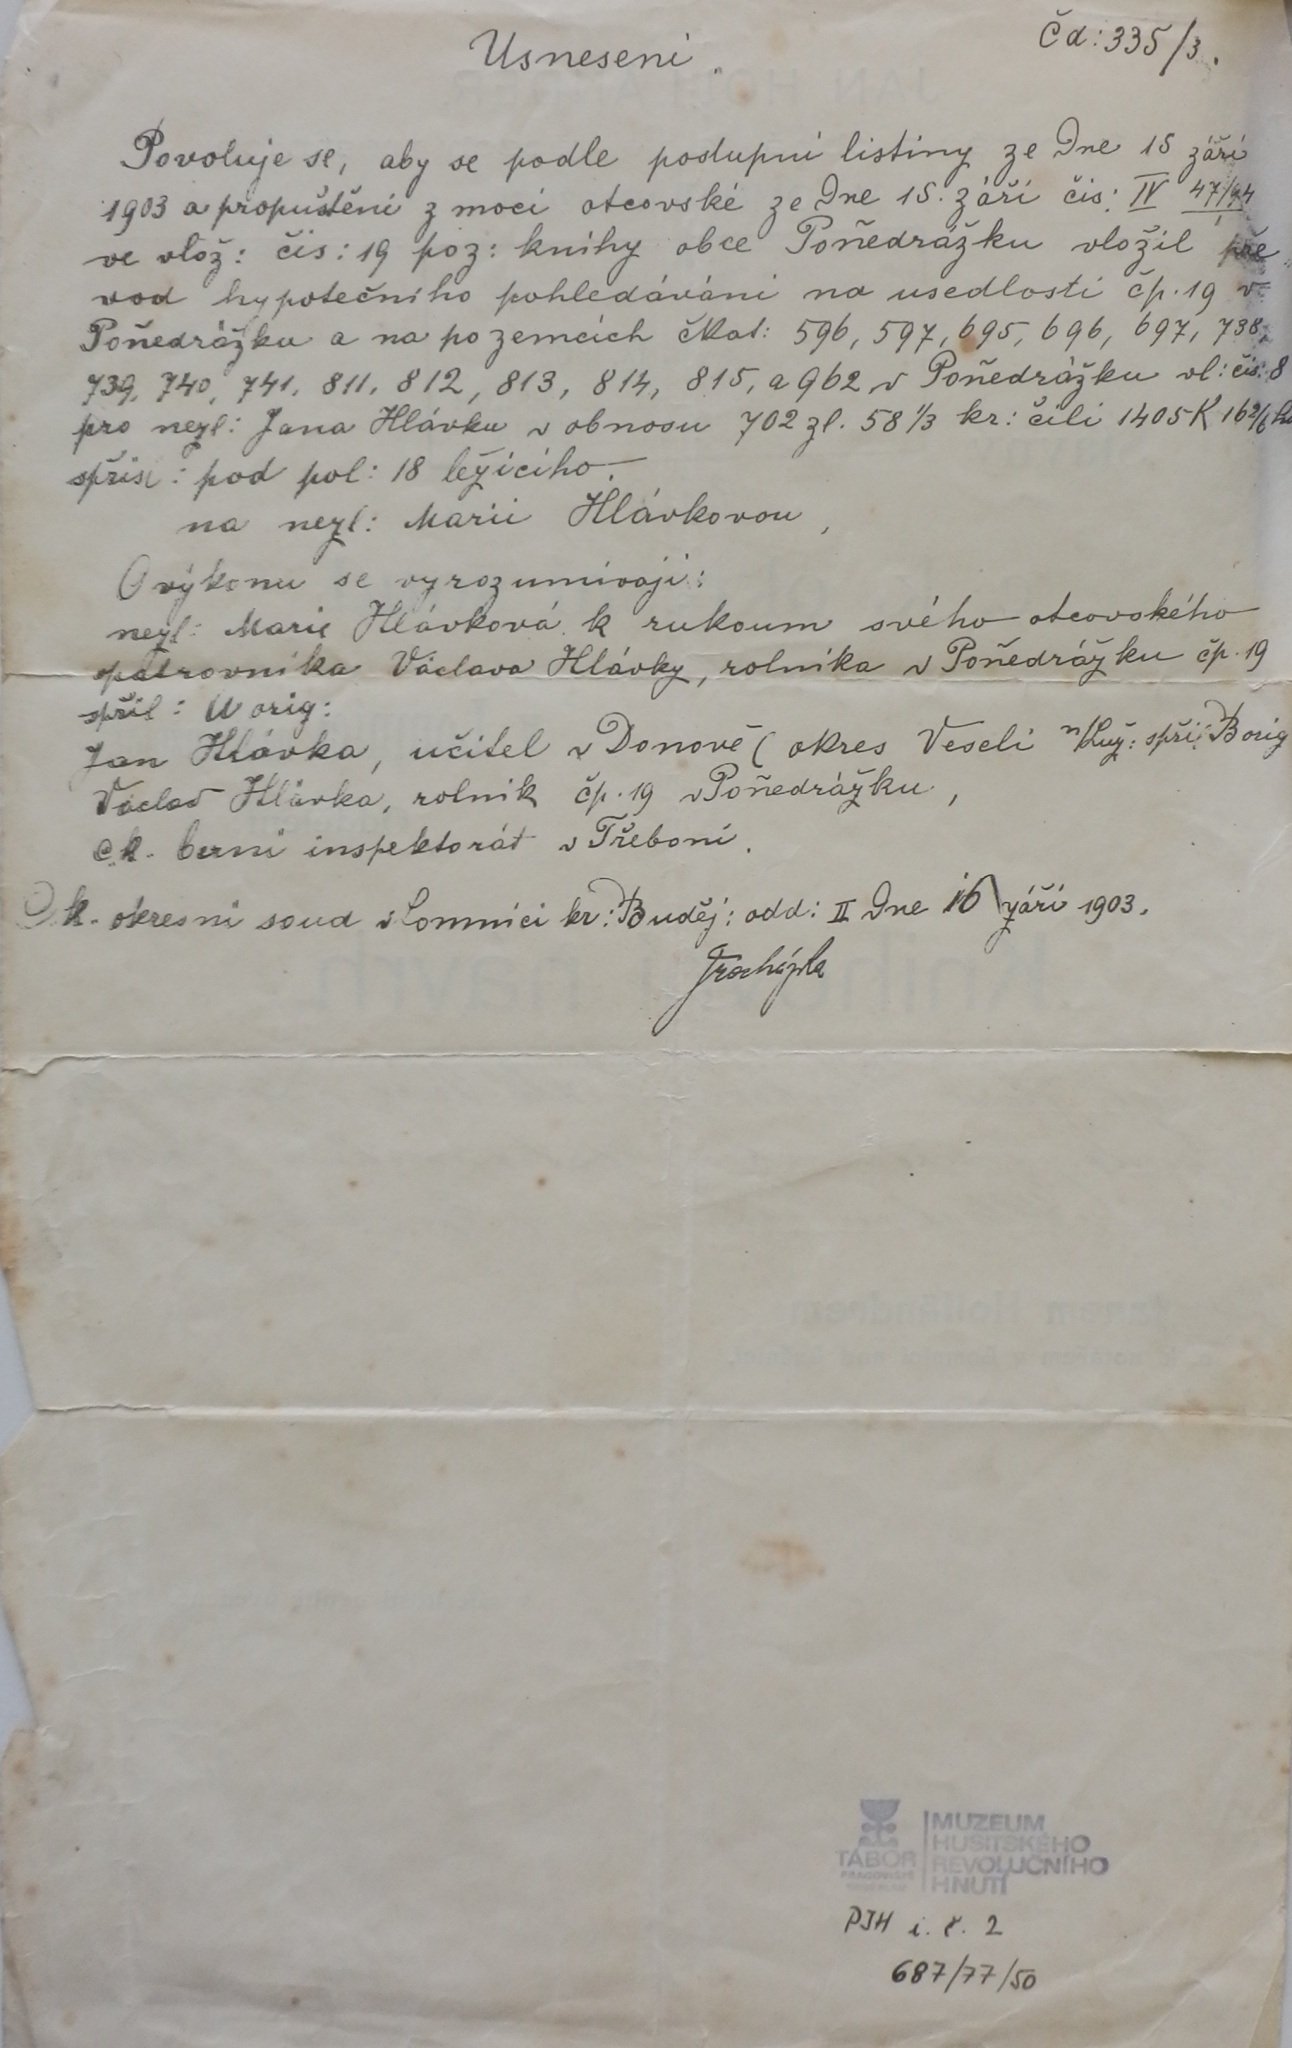 Usnesení.
Čd: 335/3.
Povoluje se, aby se podle postupní listiny ze dne 15 září
1903 a propuštění z moci otcovské ze dne 15. září čís: IV 47/94
ve vlož: čís: 19 poz: knihy obce Poňedrážku vložil pře
vod hypotečního pohledávání na usedlosti čp. 19 v
Poňedrážku a na pozemcích čkat: 596, 597, 695, 696, 697, 738,
739, 740, 741, 811, 812, 813, 814, 815, a 962 v Poňedrážku vl: čís: 8
pro nezl: Jana Hlávku v obnosu 702 zl. 58 1/3 kr: čili 1405 K 16 2/6
spřísl: pod pol: 18 ležícího
na nezl: Marii Hlávkovou,
O výkonu se vyrozumívají:
nezl: Marie Hlávková k rukoum svého otcovského
patrovníka Václava Hlávky, rolníka v Poňedrážku čp. 19
spříl: orig:
Jan Hlávka, učitel v Donově (okres Veselí n/Luž: spříl: B orig
Václav Hlávka, rolník čp. 19 v Poňedrážku,
c. k. berní inspektorát v Třeboni.
C. k. okresní soud v Lomnici kr: Buděj: odd: II dne 16 září 1903.
TÁBOR
MUZEUM
HUSITSKÉHO
REVOLUČNÍHO
HNUTÍ
PJH i. č. 2
687/77/50